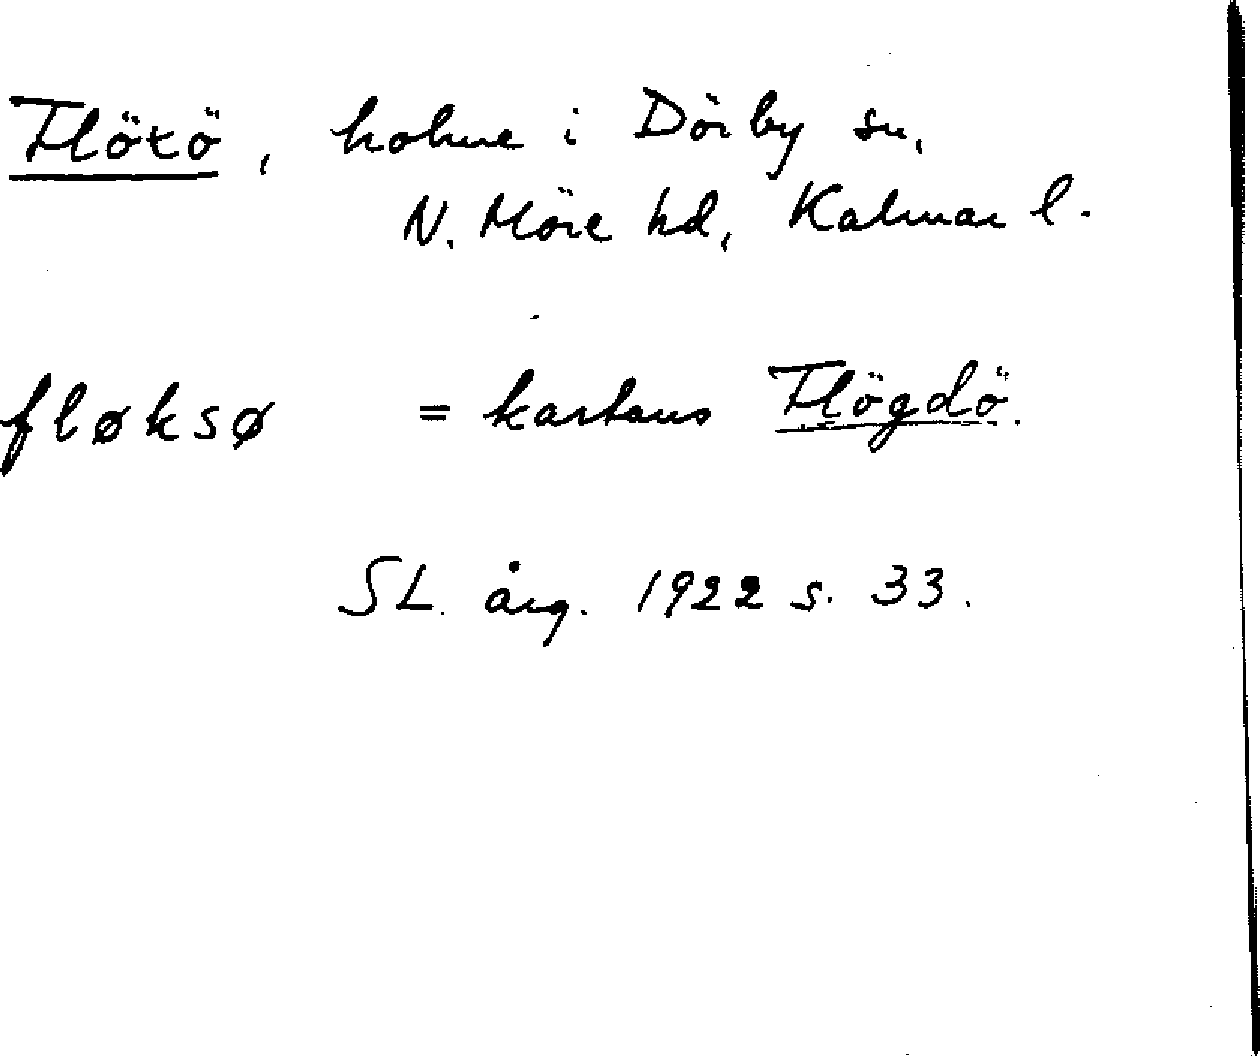 Flötö, holme i Dörby sn,
N. Möre hd, Kalmar l.
fløksø = kartans Flögdö.
SL. årg. 1922 s. 33.